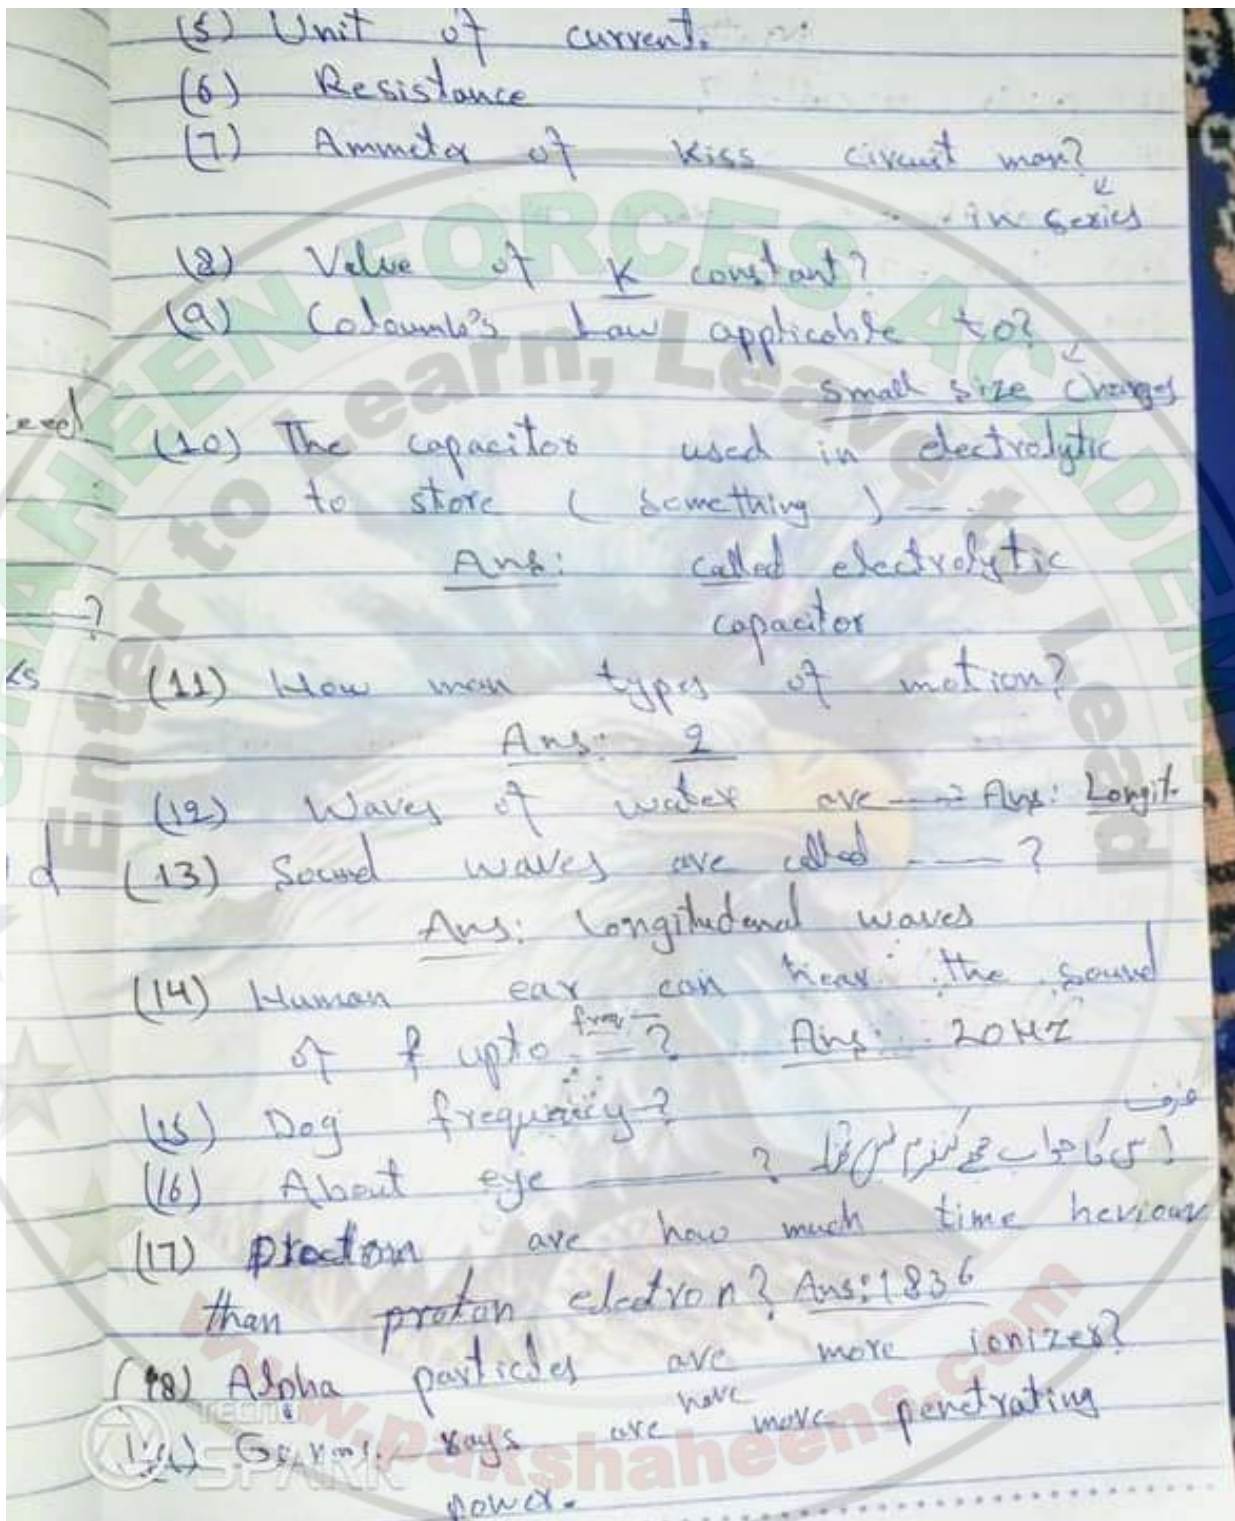 (5) Unit of current.
(6) Resistance
(7) Ammeter of kiss circuit man?
in series
(8) Value of K constant?
(9) Coloumb's Law applicable to?
small size charges
(10) The capacitor used in electrolytic
to store ( something ) —
Ans: called electrolytic
capacitor
(11) How man types of motion?
Ans: 2
(12) Waves of water are — Ans: Longit.
(13) Sound waves are called — ?
Ans: Longitudenal waves
(14) Human ear can hear the sound
of f upto freq — ? Ans: 20HZ
(15) Dog frequency?
(16) About eye — ? اس کا جواب مجھے کنفرم نہیں
(17) are how much time heviour
than proton electron? Ans: 1836
(18) Alpha particles are more ionizer?
rays are have more penetrating
power.
SHAHEEN FORCES ACADEMY
Enter to Learn, Leave to Lead
www.pakshaheens.com
TECNO
SPARK